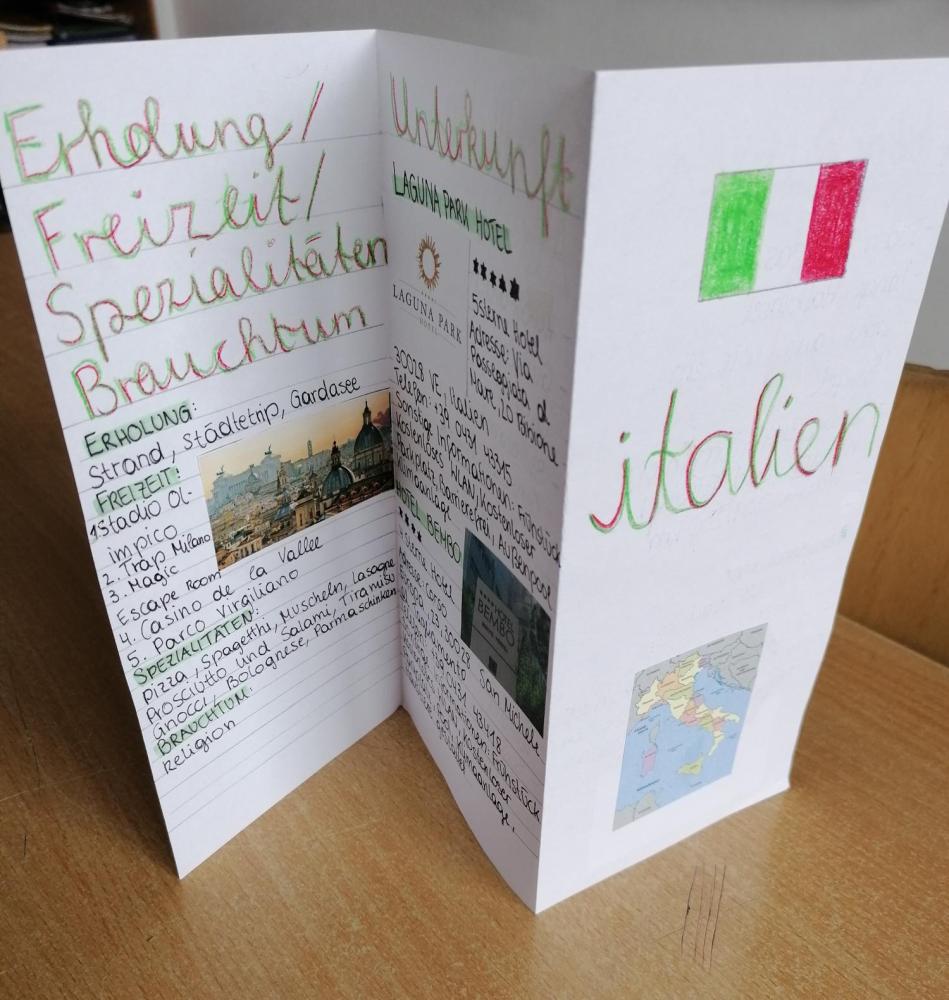 Erholung/
Freizeit/
Spezialitäten
Brauchtum
ERHOLUNG:
Strand, Städtetrip, Gardasee
FREIZEIT:
1 Stadio Ol-
impico
2. Trap Milano
3. Magic
Escape Room
4. Casino de la Vallee
5. Parco Virgiliano
SPEZIALITÄTEN:
Pizza, Spagetthi, Muscheln, Lasagne
Prosciutto und Salami, Tiramisu
Gnocci, Bolognese, Parmaschinken
BRAUCHTUM:
Religion
Unterkunft
LAGUNA PARK HOTEL
LAGUNA PARK
HOTEL
5sterne Hotel
Adresse: Via
Passegiata al
Mare, 20 Bibione
30028 VE, Italien
Telefon: +39 0431 43315
Sonstige Informationen: Frühstück
kostenloses WLAN, kostenloser
Parkplatz, Barrierefrei, Außenpool
Klimaanlage
HOTEL BEMBO
BEMBO
Hotel
Adresse: Corso
Europa, 23, 30028
San Michele
al Tagliamento
0431 43418
Informationen: Frühstück
WLAN, kostenloser
Klimaanlage,
italien